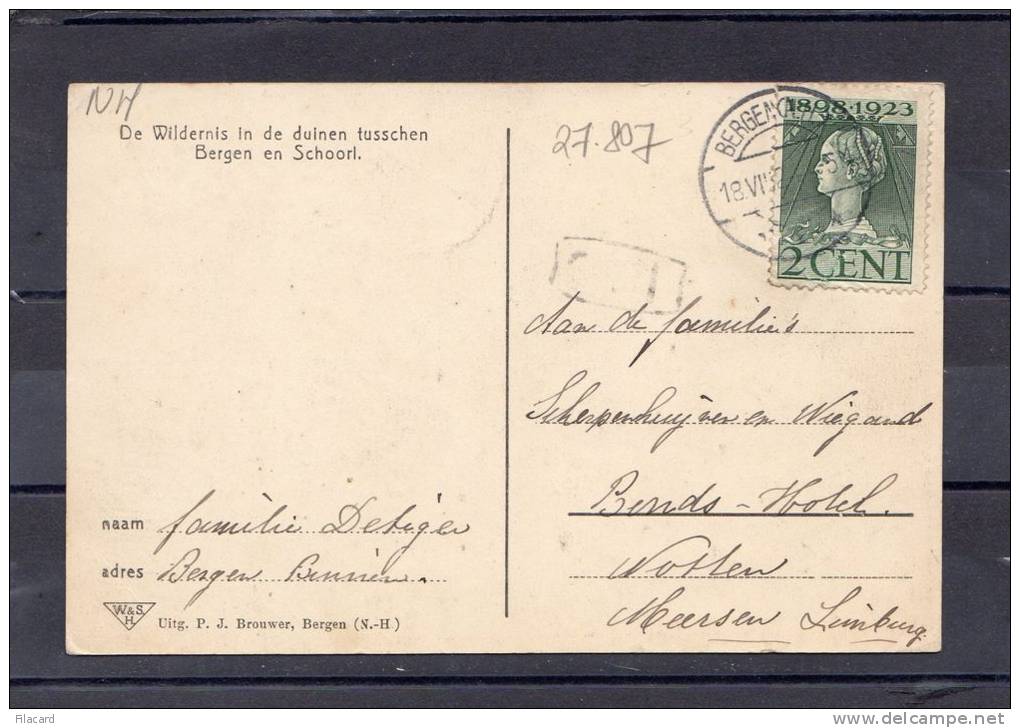 NH
De Wildernis in de duinen tusschen
Bergen en Schoorl.
27.807
BERGEN (N.H.)
18.VI
1898·1923
2 CENT
Aan de familie's
Scherpenhuijven en Wiegand
Bonds-Hotel.
Notten
Meersen Limburg.
naam familie Detiger
adres Bergen Binnen.
W.&S.
H.
Uitg. P. J. Brouwer, Bergen (N.-H.)
Filacard
delcampe.net